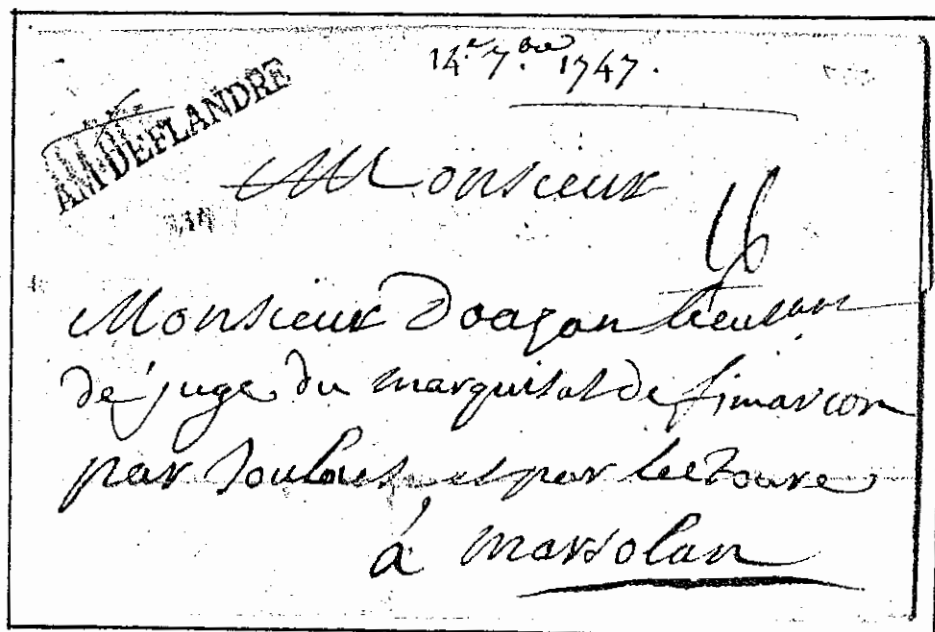 14.e 7.bre 1747.
AM DEFLANDRE
Monsieur
16
Monsieur Doazan lieutenant
de juge du marquisat de fimarcon
par Toulouse et par lectoure
à marsolan